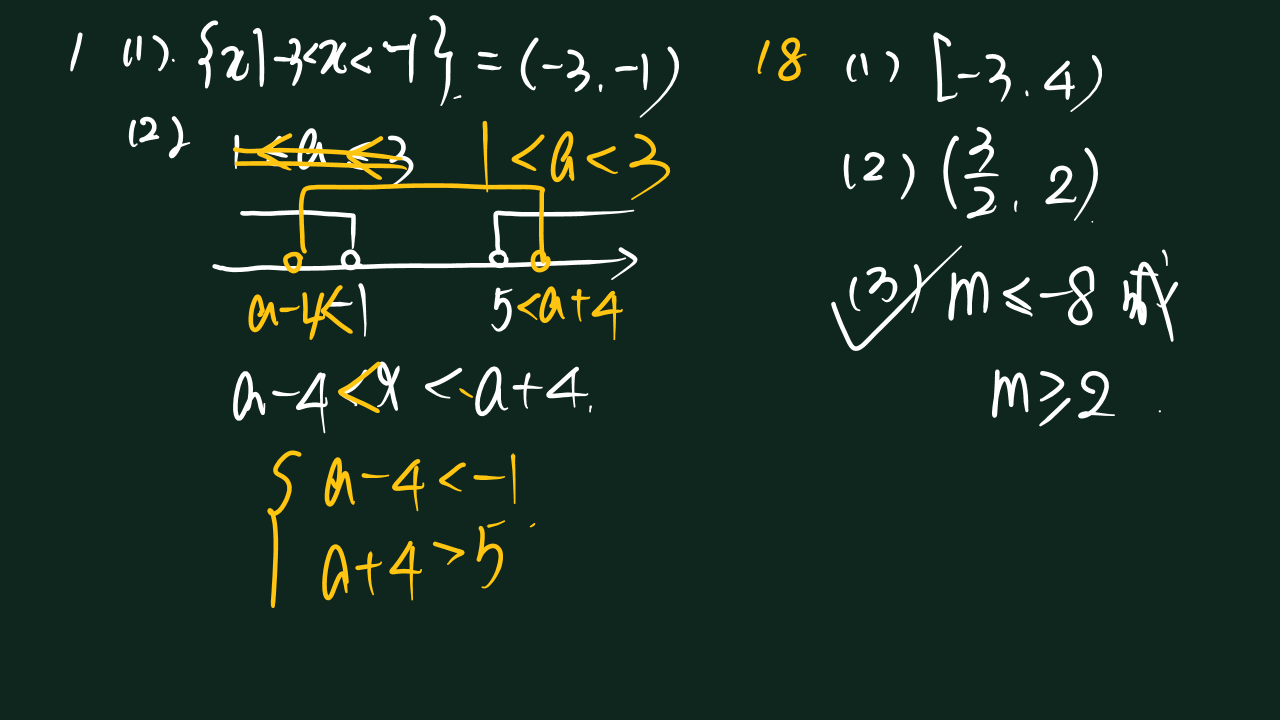 1 (1). {x|-3<x<-1} = (-3,-1)
(2) 1<a<3 1<a<3
a-4<-1 5<a+4
a-4<x<a+4.
{ a-4<-1
a+4>5
18 (1) [-3,4)
(2) (3/2, 2)
(3) m≤-8
m≥2